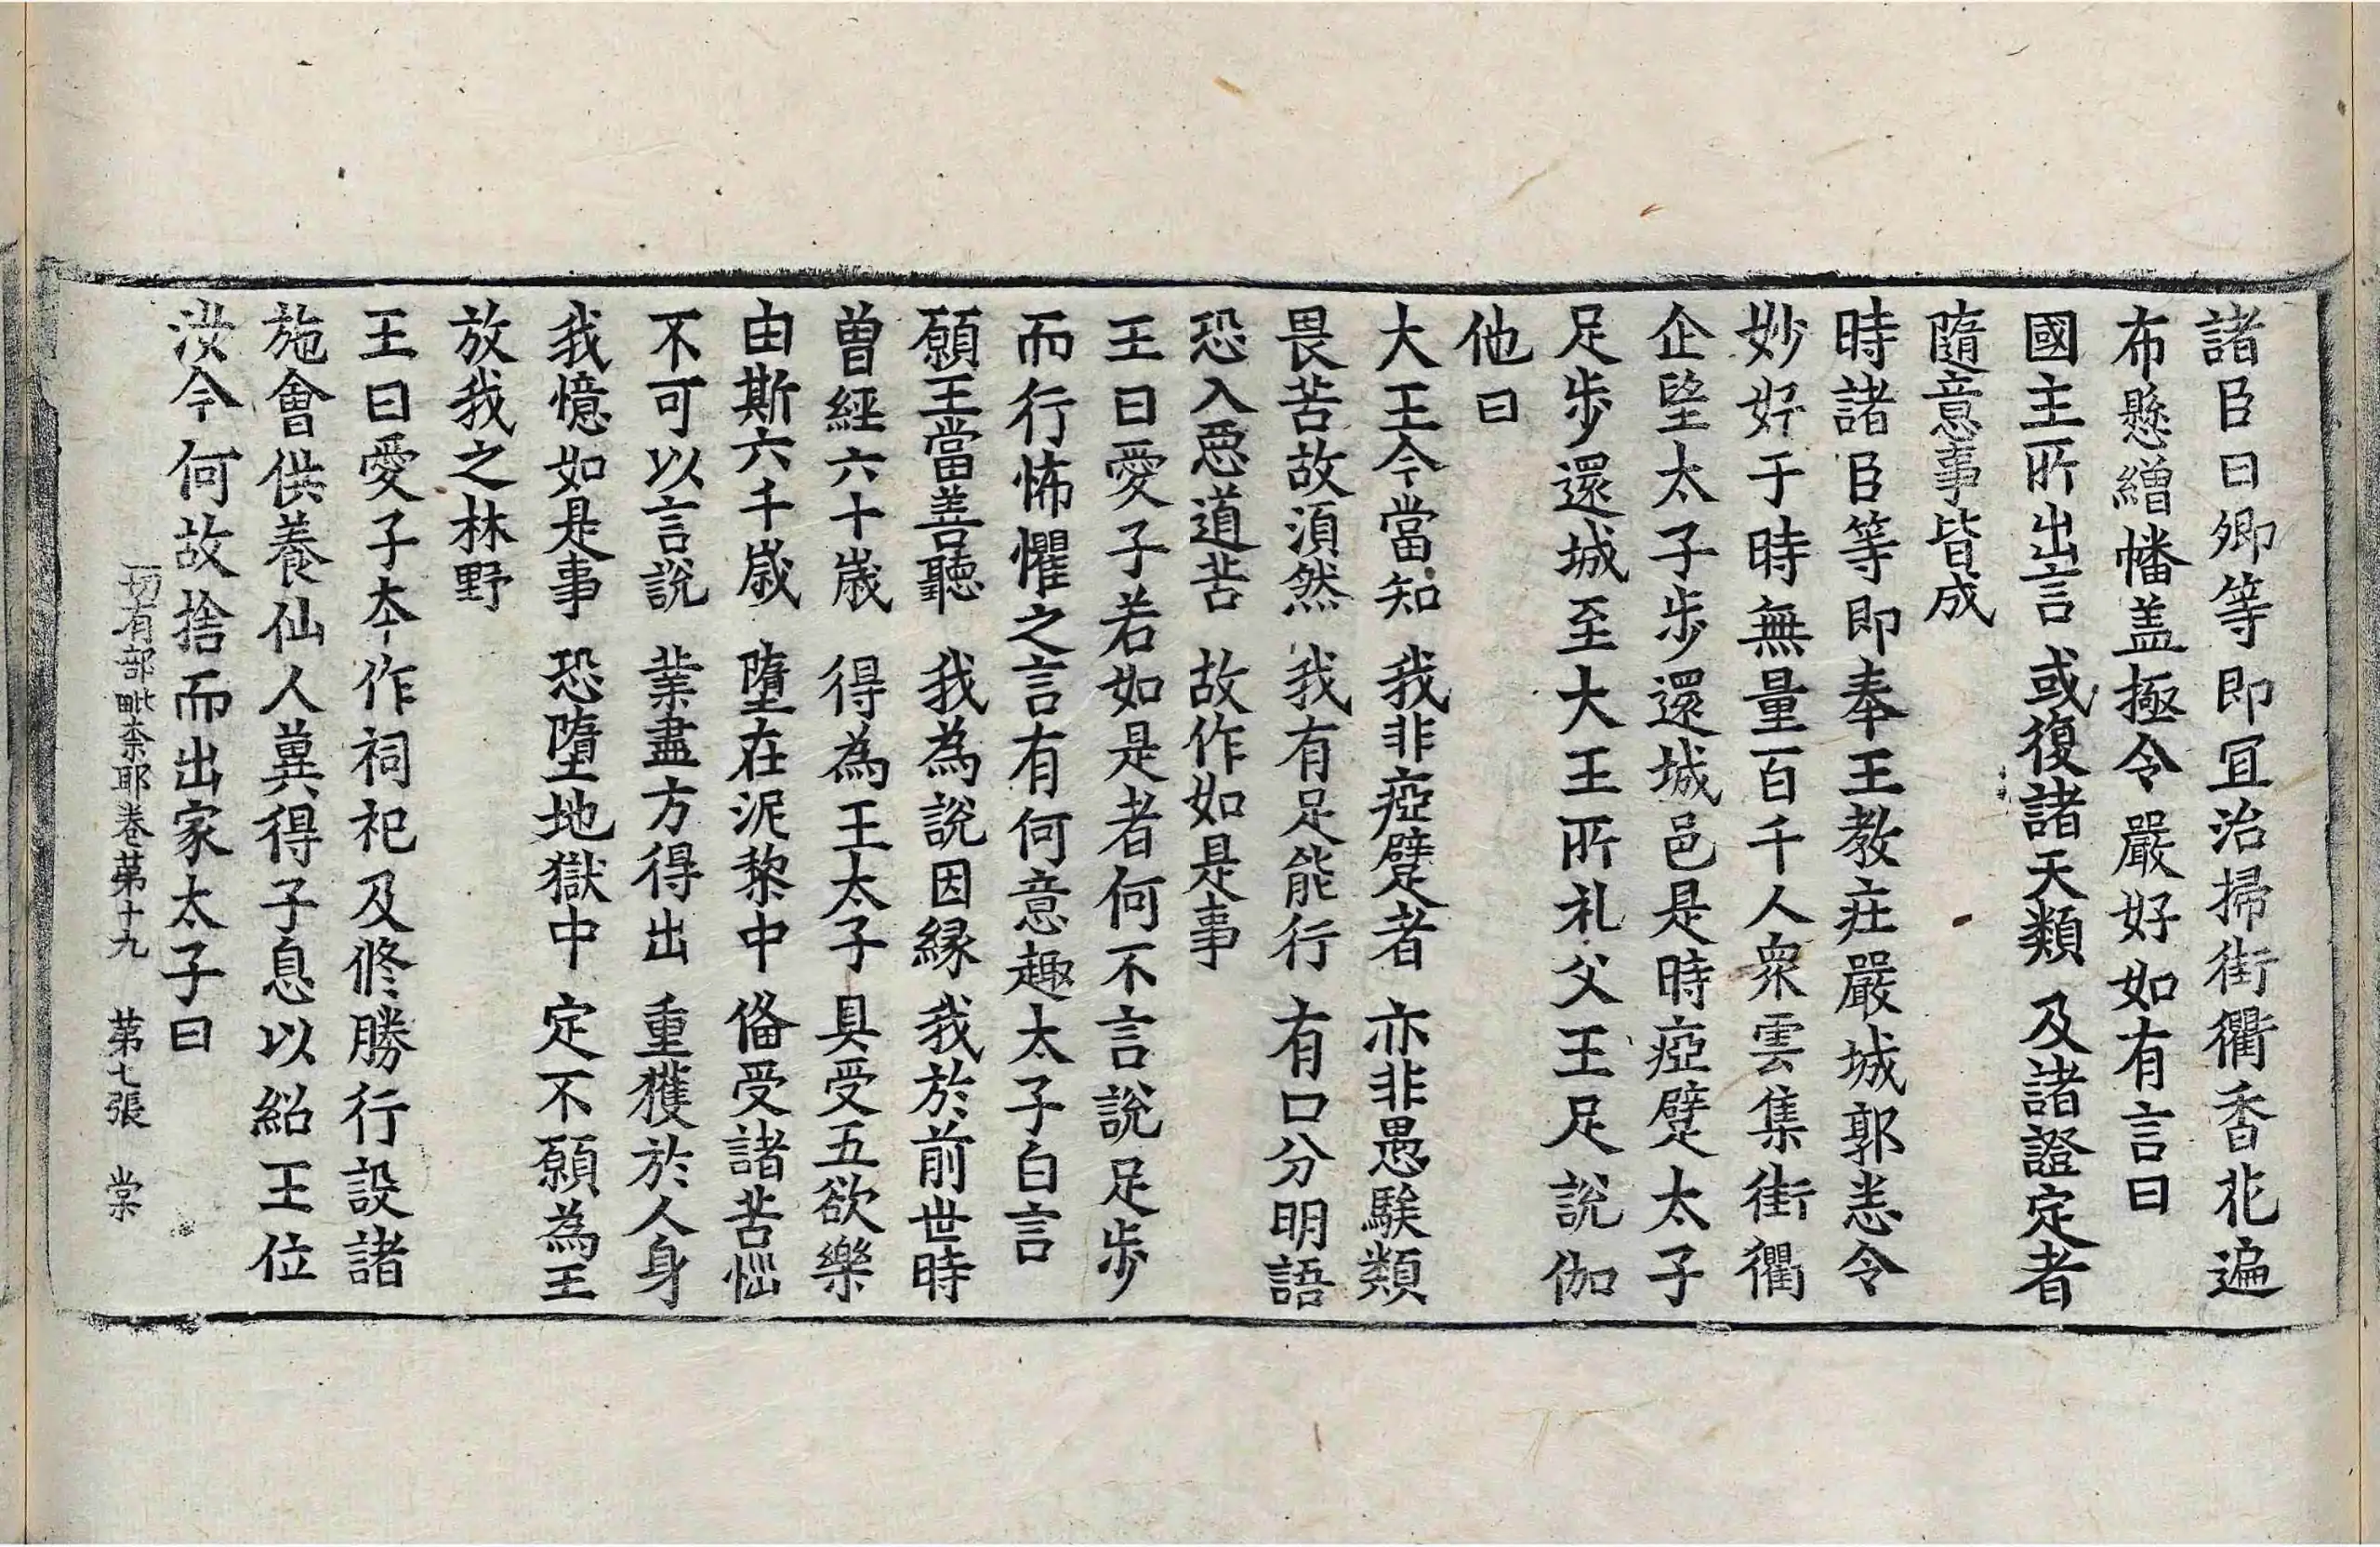 諸臣曰卿等即冝治掃街衢香花遍
布懸繒幡盖極令嚴好如有言曰
國主所出言 或復諸天類 及諸證定者
隨意事皆成
時諸臣等即奉王教庄嚴城郭恙令
妙好于時無量百千人衆雲集街衢
企望太子步還城邑是時瘂躄太子
足步還城至大王所礼父王足說伽
他曰
大王今當知 我非瘂躄者 亦非愚騃類
畏苦故湏然 我有足能行 有口分明語
恐入惡道苦 故作如是事
王曰愛子若如是者何不言說足步
而行怖懼之言有何意趣太子白言
願王當善聽 我為說因緣 我於前世時
曽經六十歲 得為王太子 具受五欲樂
由斯六千歲 墮在泥黎中 俻受諸苦惱
不可以言說 業盡方得出 重獲於人身
我憶如是事 恐墮地獄中 定不願為王
放我之林野
王曰愛子夲作祠祀及修勝行設諸
施會供養仙人兾得子息以紹王位
汝今何故捨而出家太子曰
一切有部毗奈耶卷第十九 第七張 棠